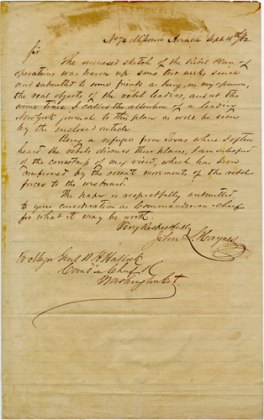 Sept 10th /62
Sir
The enclosed sketch of the Rebel plan of
operations was drawn up some two weeks since
and submitted to some friends as being, in my opinion,
the real objects of the rebel leaders, and at the
same time I called the attention of a leading
New York journal to this plan as will be seen
by the enclosed article.
Being a refugee from Texas where I often
heard the rebels discuss their plans, I am satisfied
of the correctness of my view, which has been
confirmed by the recent movements of the rebel
forces to the westward.
The paper is respectfully submitted
to your consideration as Commander in Chief
for what it may be worth.
Very Respectfully
John L Haynes
To Major Genl H W Halleck
Comd'r in Chief
Washington Cit